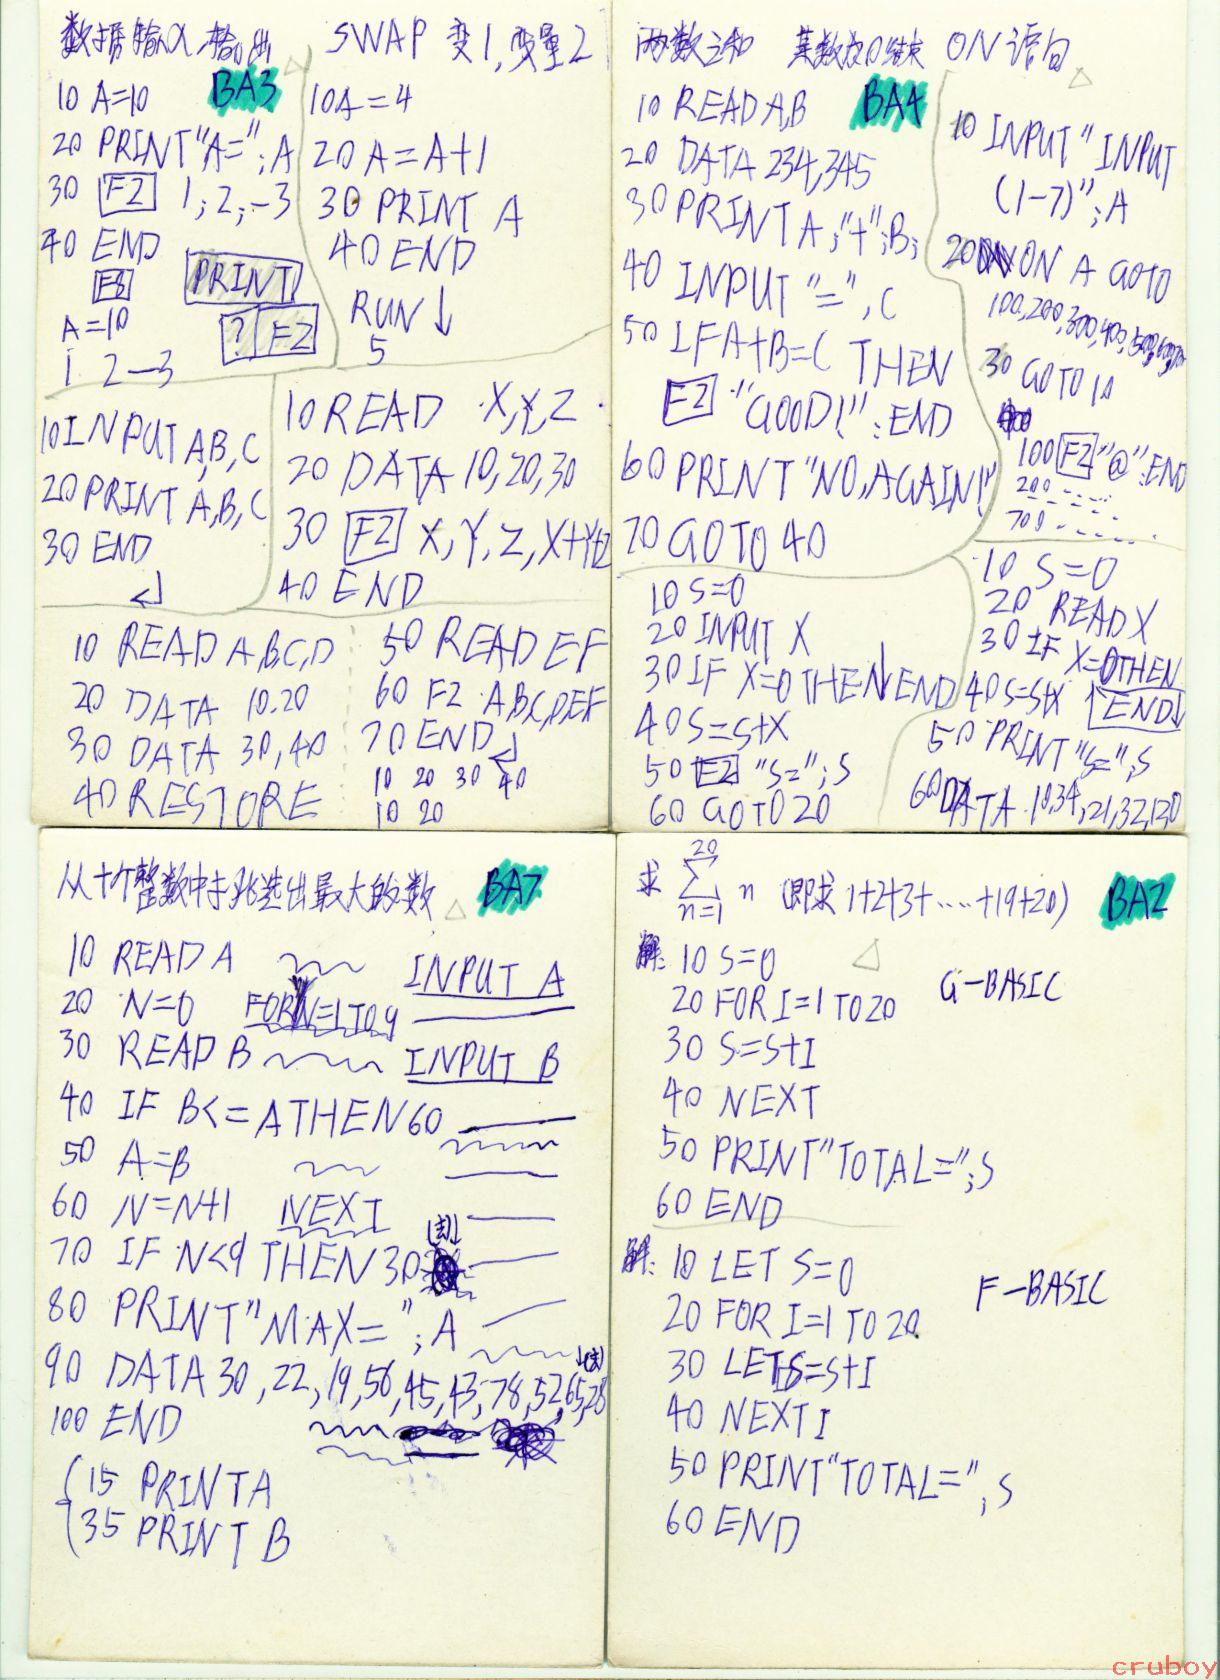 数据输入输出 SWAP 变1,变量2
BA3
10 A=10
20 PRINT"A=";A
30 F2 1;2;-3
40 END
F8
A=10
1 2-3
PRINT
? F2
10A=4
20 A=A+1
30 PRINT A
40 END
RUN↓
5
10 INPUT A,B,C
20 PRINT A,B,C
30 END
10 READ X,Y,Z
20 DATA 10,20,30
30 F2 X,Y,Z,X+Y+Z
40 END
10 READ A,B,C,D
20 DATA 10.20
30 DATA 30,40
40 RESTORE
50 READ E F
60 F2 A,B,C,D,E,F
70 END
10 20 30 40
10 20
两数之和 某数及0结束 ON语句
BA4
10 READ A,B
20 DATA 234,345
30 PRINT A;"+";B;
40 INPUT "=",C
50 IF A+B=C THEN
F2 "GOOD!":END
60 PRINT "NO,AGAIN!"
70 GOTO 40
10 INPUT "INPUT
(1-7)";A
20 ON A GOTO
100,200,300,400,500,600,700
30 GOTO 10
100 F2 "@":END
200
700
10 S=0
20 INPUT X
30 IF X=0 THEN↓END
40 S=S+X
50 F2 "S=";S
60 GOTO 20
10 S=0
20 READ X
30 IF X=0THEN
↑END↓
40 S=S+X
50 PRINT "S=";S
60 DATA 10,34,21,32,12,0
从十个整数中挑选出最大的数 BA7
10 READ A INPUT A
20 N=0 FOR N=1 TO 9
30 READ B INPUT B
40 IF B<=A THEN 60
50 A=B
60 N=N+1 NEXT
70 IF N<9 THEN 30
80 PRINT"MAX=";A
90 DATA 30,22,19,56,45,43,78,52,65,28
100 END
15 PRINT A
35 PRINT B
求 20∑n=1 n (即求1+2+3+.....+19+20) BA2
解: 10 S=0 G-BASIC
20 FOR I=1 TO 20
30 S=S+I
40 NEXT
50 PRINT"TOTAL=";S
60 END
解: 10 LET S=0 F-BASIC
20 FOR I=1 TO 20
30 LET S=S+I
40 NEXT I
50 PRINT"TOTAL=",S
60 END
cruboy